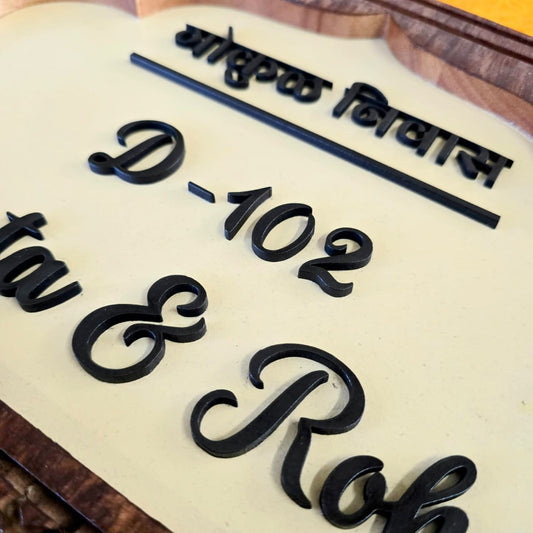 गोकुळ निवास
D-102
ta & Roh